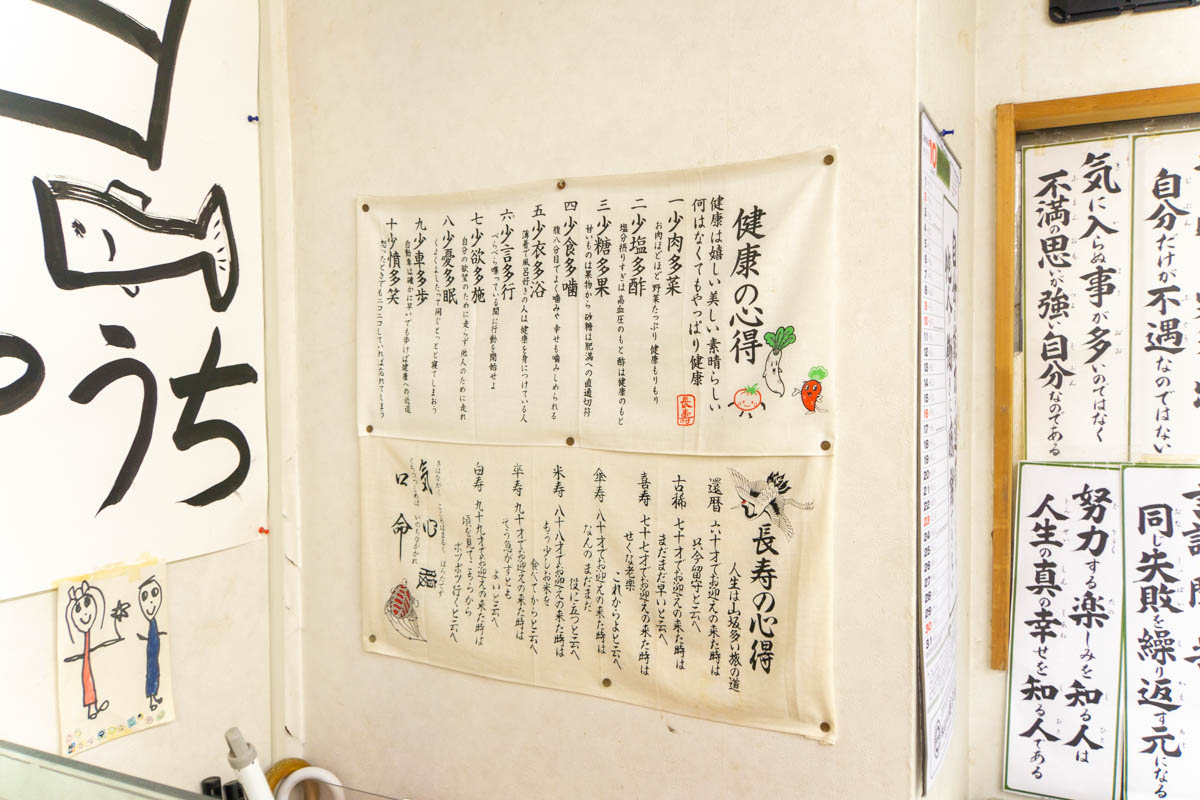 健康の心得
健康は嬉しい美しい素晴らしい
何はなくてもやっぱり健康
長寿
一 少肉多菜
お肉ほどほど 野菜たっぷり 健康もりもり
二 少塩多酢
塩分摂りすぎは 高血圧のもと 酢は健康のもと
三 少糖多果
甘いものは果物から 砂糖は肥満への直通切符
四 少食多噛
腹八分目でよく噛みゃ 幸せも噛みしめられる
五 少衣多浴
薄着で風呂好きの人は 健康を身につけている人
六 少言多行
べらべら喋っている間に行動を開始せよ
七 少欲多施
自分の欲望のために走らず 他人のために走れ
八 少憂多眠
くよくよしたって同じ とっとと寝てしまおう
九 少車多歩
自動車は確かに早いでも歩けば健康への近道
十 少憤多笑
怒ったときでもニコニコしていれば忘れてしまう
長寿の心得
人生は山坂多い旅の道
還暦 六十才でお迎えの来た時は
只今留守と云へ
古稀 七十才でお迎えの来た時は
まだまだ早いと云へ
喜寿 七十七才でお迎えの来た時は
せくな老楽
これからよと云へ
傘寿 八十才でお迎えの来た時は
なんのまだまだ
役に立つと云へ
米寿 八十八才でお迎えの来た時は
もう少しお米を
食べてからと云へ
卒寿 九十才でお迎えの来た時は
そう急がずとも
よいと云へ
白寿 九十九才でお迎えの来た時は
頃を見てこちらから
ボツボツ行くと云へ
きはながく こころはまるく はらたてず
くちつつしめば いのちながかれ
気 心 腹
口 命
うち
10
自分だけが不遇なのではない
気に入らぬ事が多いのではなく
不満の思いが強い自分なのである
同じ失敗を繰り返す元になる
努力する楽しみを知る人は
人生の真の幸せを知る人である